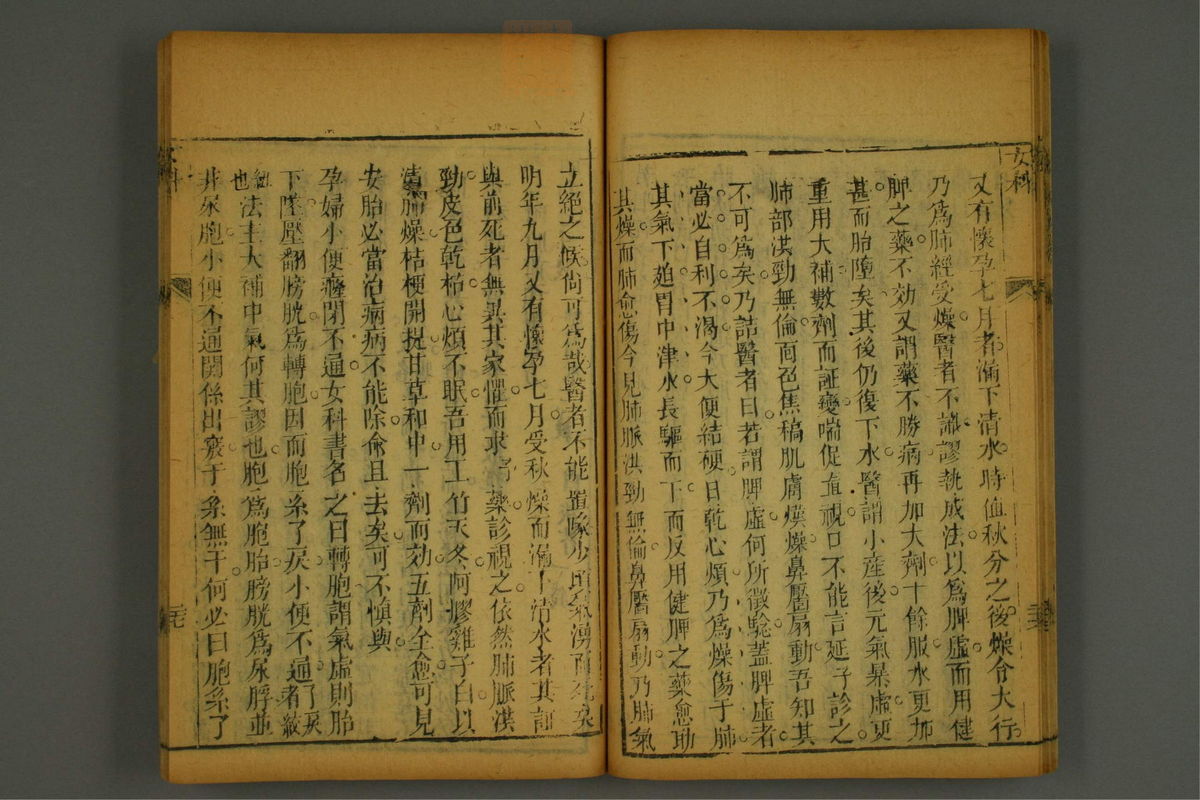 女科
又有懷孕七月者滿下清水時值秋分之後燥令大行
乃爲肺經受燥醫者不識謬執成法以爲脾虛而用健
脾之藥不効又謂藥不勝病再加大劑十餘服水更加
甚而胎墮矣其後仍復下水醫謂小產後元氣暴虛更
重用大補數劑而証變喘促直視口不能言延予診之
肺部洪勁無倫面色焦槁肌膚熯燥鼻醫扇動吾知其
不可爲矣乃詰醫者曰若謂脾虛何所徵驗蓋脾虛者
當必自利不渴今大便結硬口乾心煩乃爲燥傷于肺
其氣下廹胃中津水長驅而下而反用健脾之藥愈助
其燥而肺愈傷今見肺脈洪勁無倫鼻醫扇動乃肺氣
立絕之候尙可爲哉醫者不能置喙少頃氣湧而死矣
明年九月又有懷孕七月受秋燥而滿下清水者其証
與前死者無異其家懼而求予藥診視之依然肺脈洪
勁皮色乾枯心煩不眠吾用玉竹天冬阿膠雞子白以
淸肺燥桔梗開提甘草和中一劑而効五劑全愈可見
安胎必當治病病不能除兪且去矣可不愼與
孕婦小便癃閉不通女科書名之曰轉胞謂氣虛則胎
下墜壓翻膀胱爲轉胞因而胞系了戾小便不通者了戾絞
紐也法主大補中氣何其謬也胞爲胞胎膀胱爲尿脬並
非尿胞小便不通關係出竅于系無干何必曰胞系了
女科